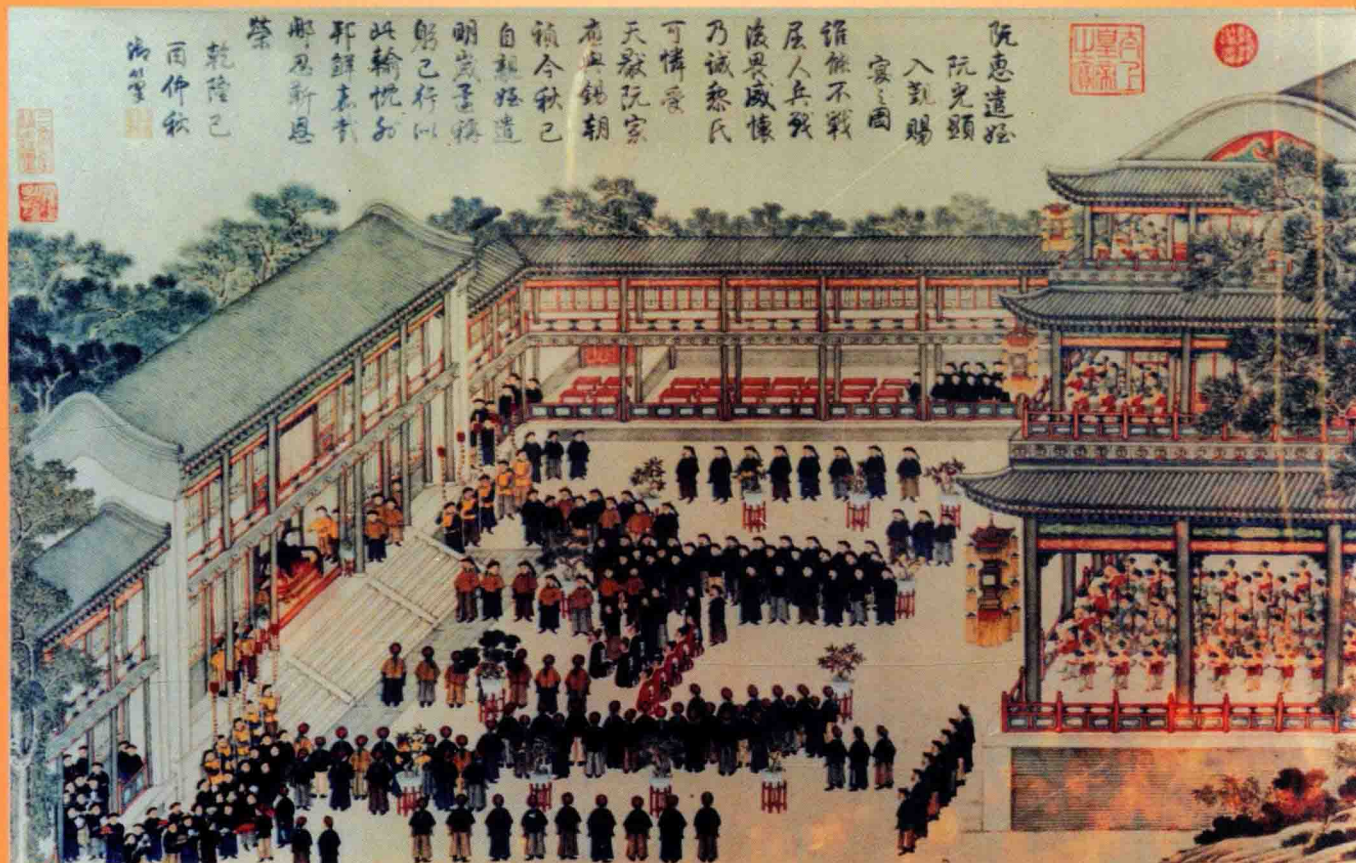 阮惠遣姪
阮光顯
入覲賜
宴之圖
誰能不戰
屈人兵戰
後畏威懷
乃誠黎氏
可憐受
天厭阮家
應與錫朝
禎今秋已
自親姪遣
明歲還稱
躬己行似
此輸忱外
邦鮮嘉哉
那忍靳恩
榮
乾隆己
酉仲秋
御筆
太上
皇帝
之寶